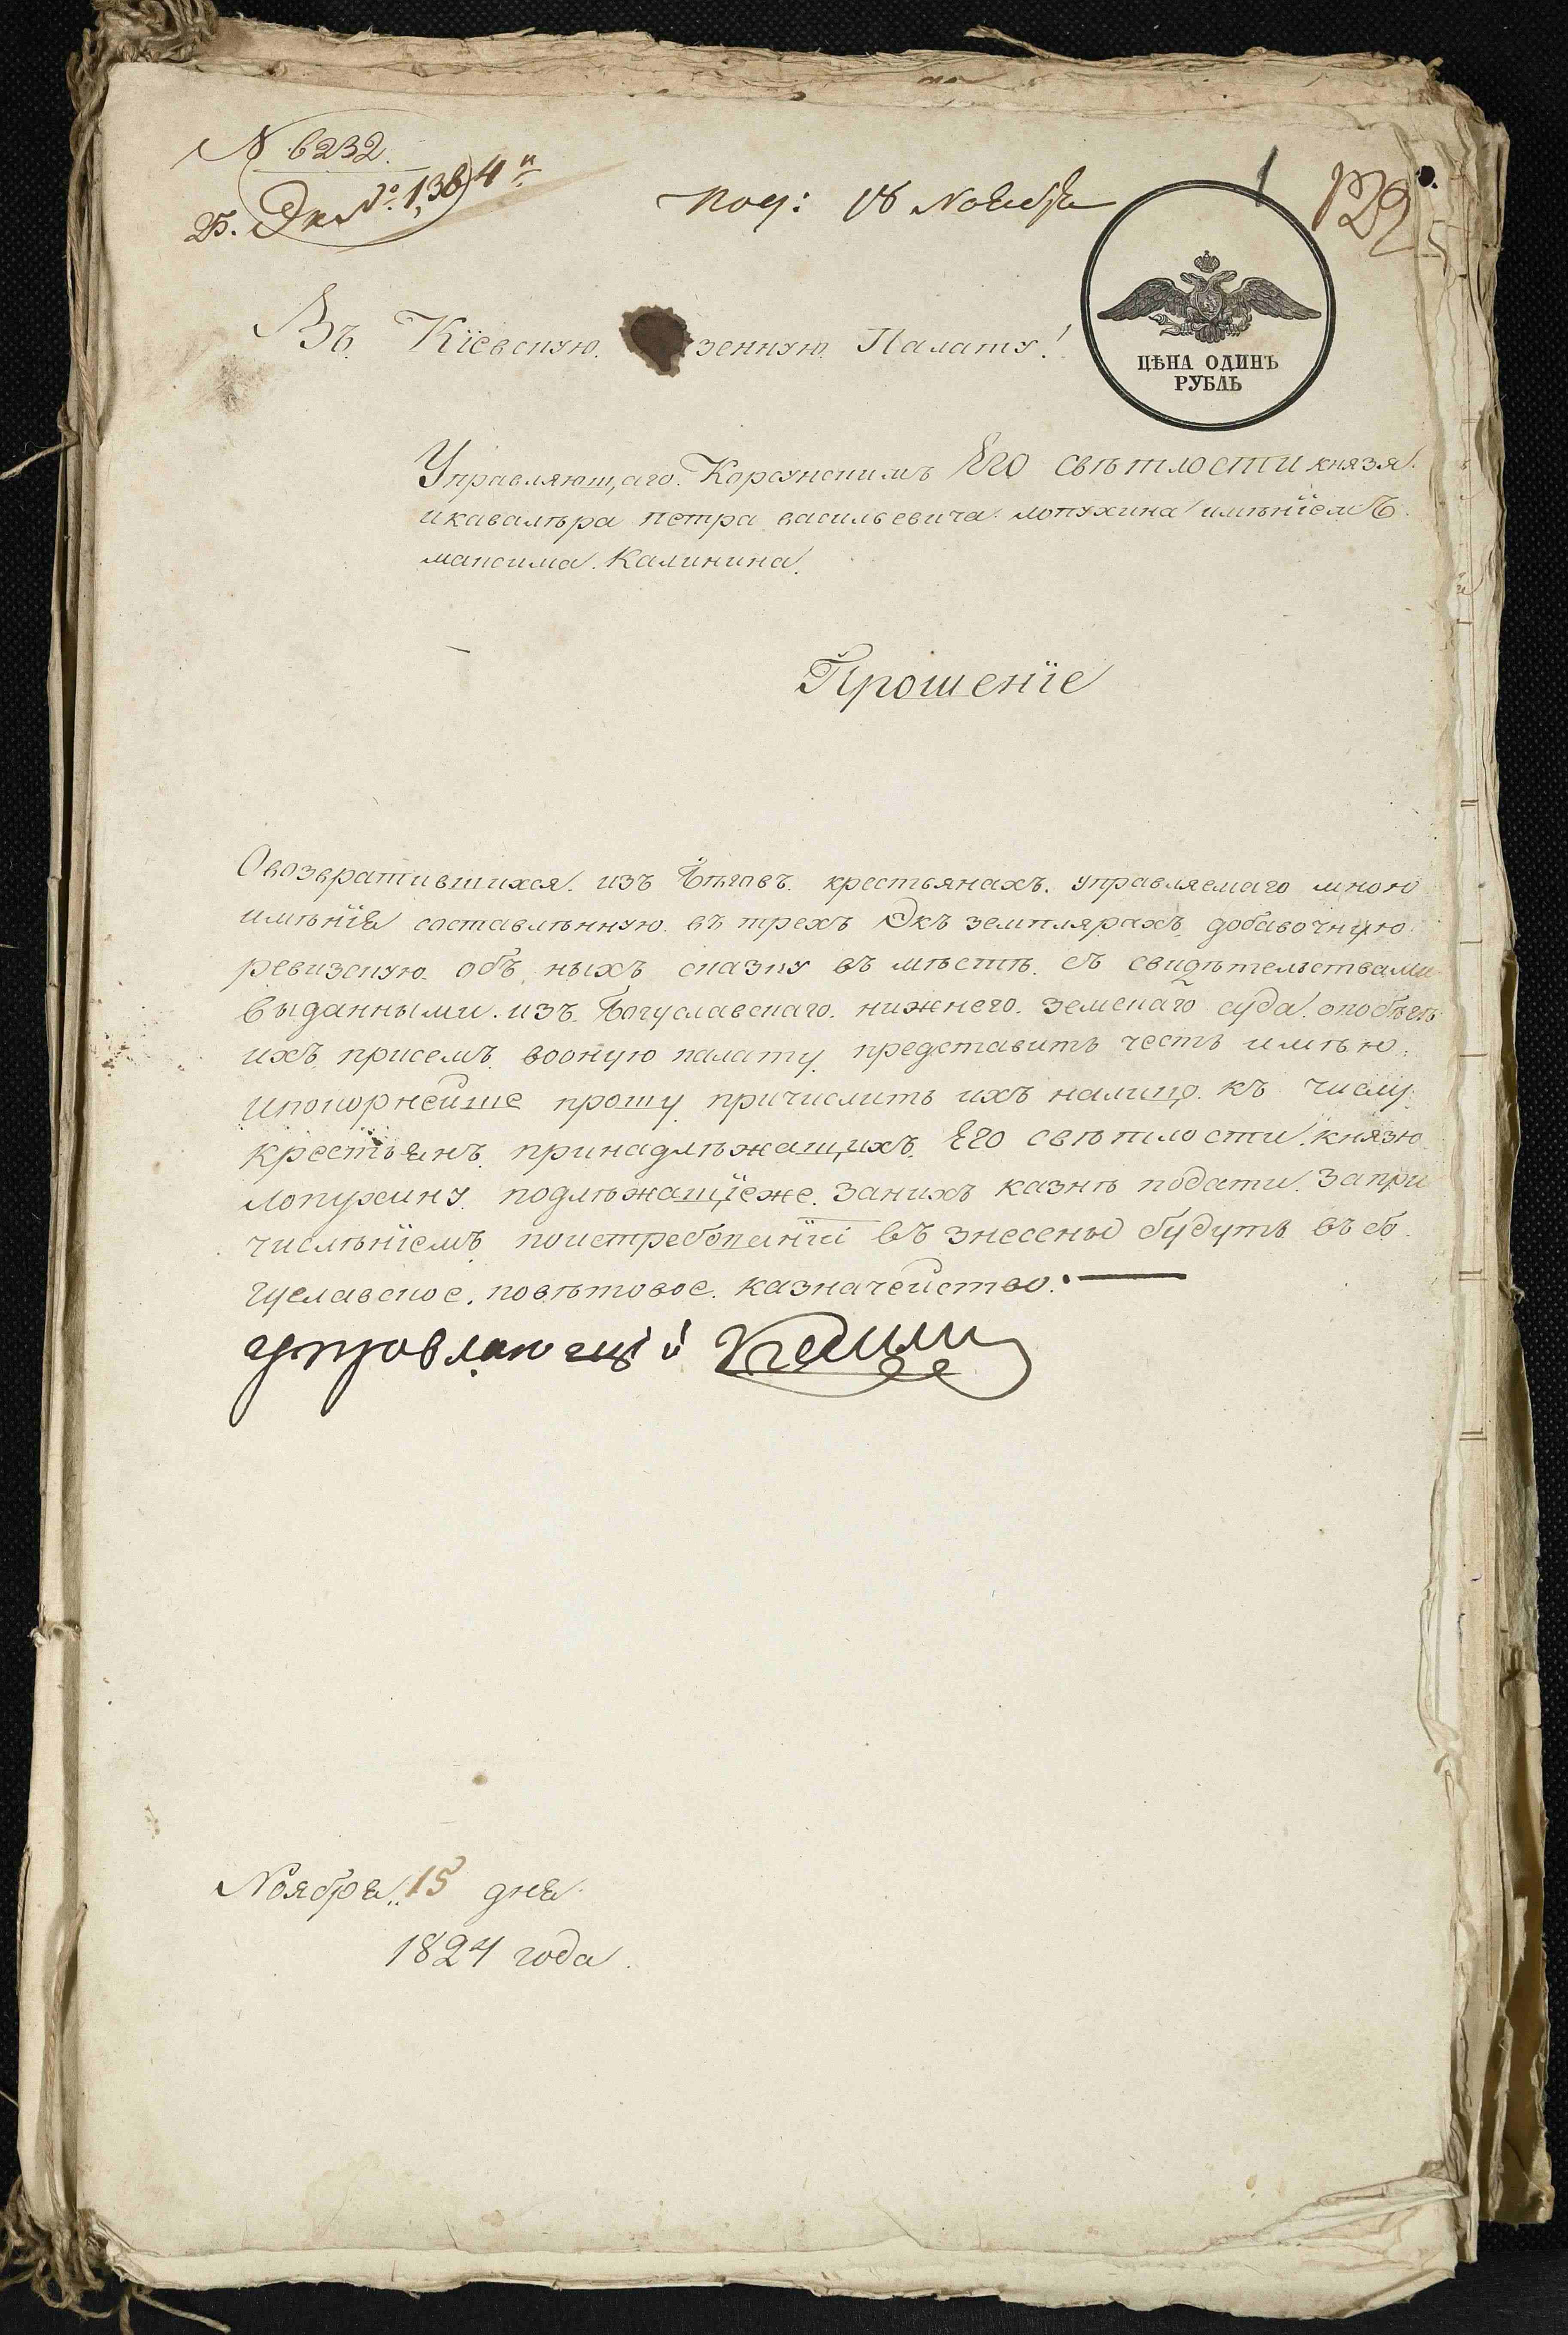 N 6232.
Эк. №. 1,364
Под: 18 Ноября
1
ЦѢНА ОДИНЪ
РУБЛЬ
Въ Кіевскую зенную Палату!
Управляющаго Корсунскимъ Его свѣтлости князя
икавалѣра петра васильевича лопухина имѣніемъ
максима Калинина
Прошеніе
Овозвратившихся изъ бѣговъ крестьянахъ управляемаго мною
имѣнія составлѣнную въ трехъ Экъ земплярахъ добавочную
ревизскую объ ныхъ сказку въ мѣстѣ съ свидѣтельствами
выданными изъ Богуславскаго нижнего земскаго суда опобѣгѣ
ихъ присемъ вооную палату представить честь имѣю
ипокорнейше прошу причислить ихъ налицо къ числу
крестьянъ принадлѣжащихъ Его свѣтлости князю
лопухину подлѣжащіеже занихъ казнѣ подати запри
числѣніемъ поистребованіи въ знесены будутъ въ бо
гуславское повѣтовое казначейство.
управляющій Калинин
Ноября 15 дня
1824 года